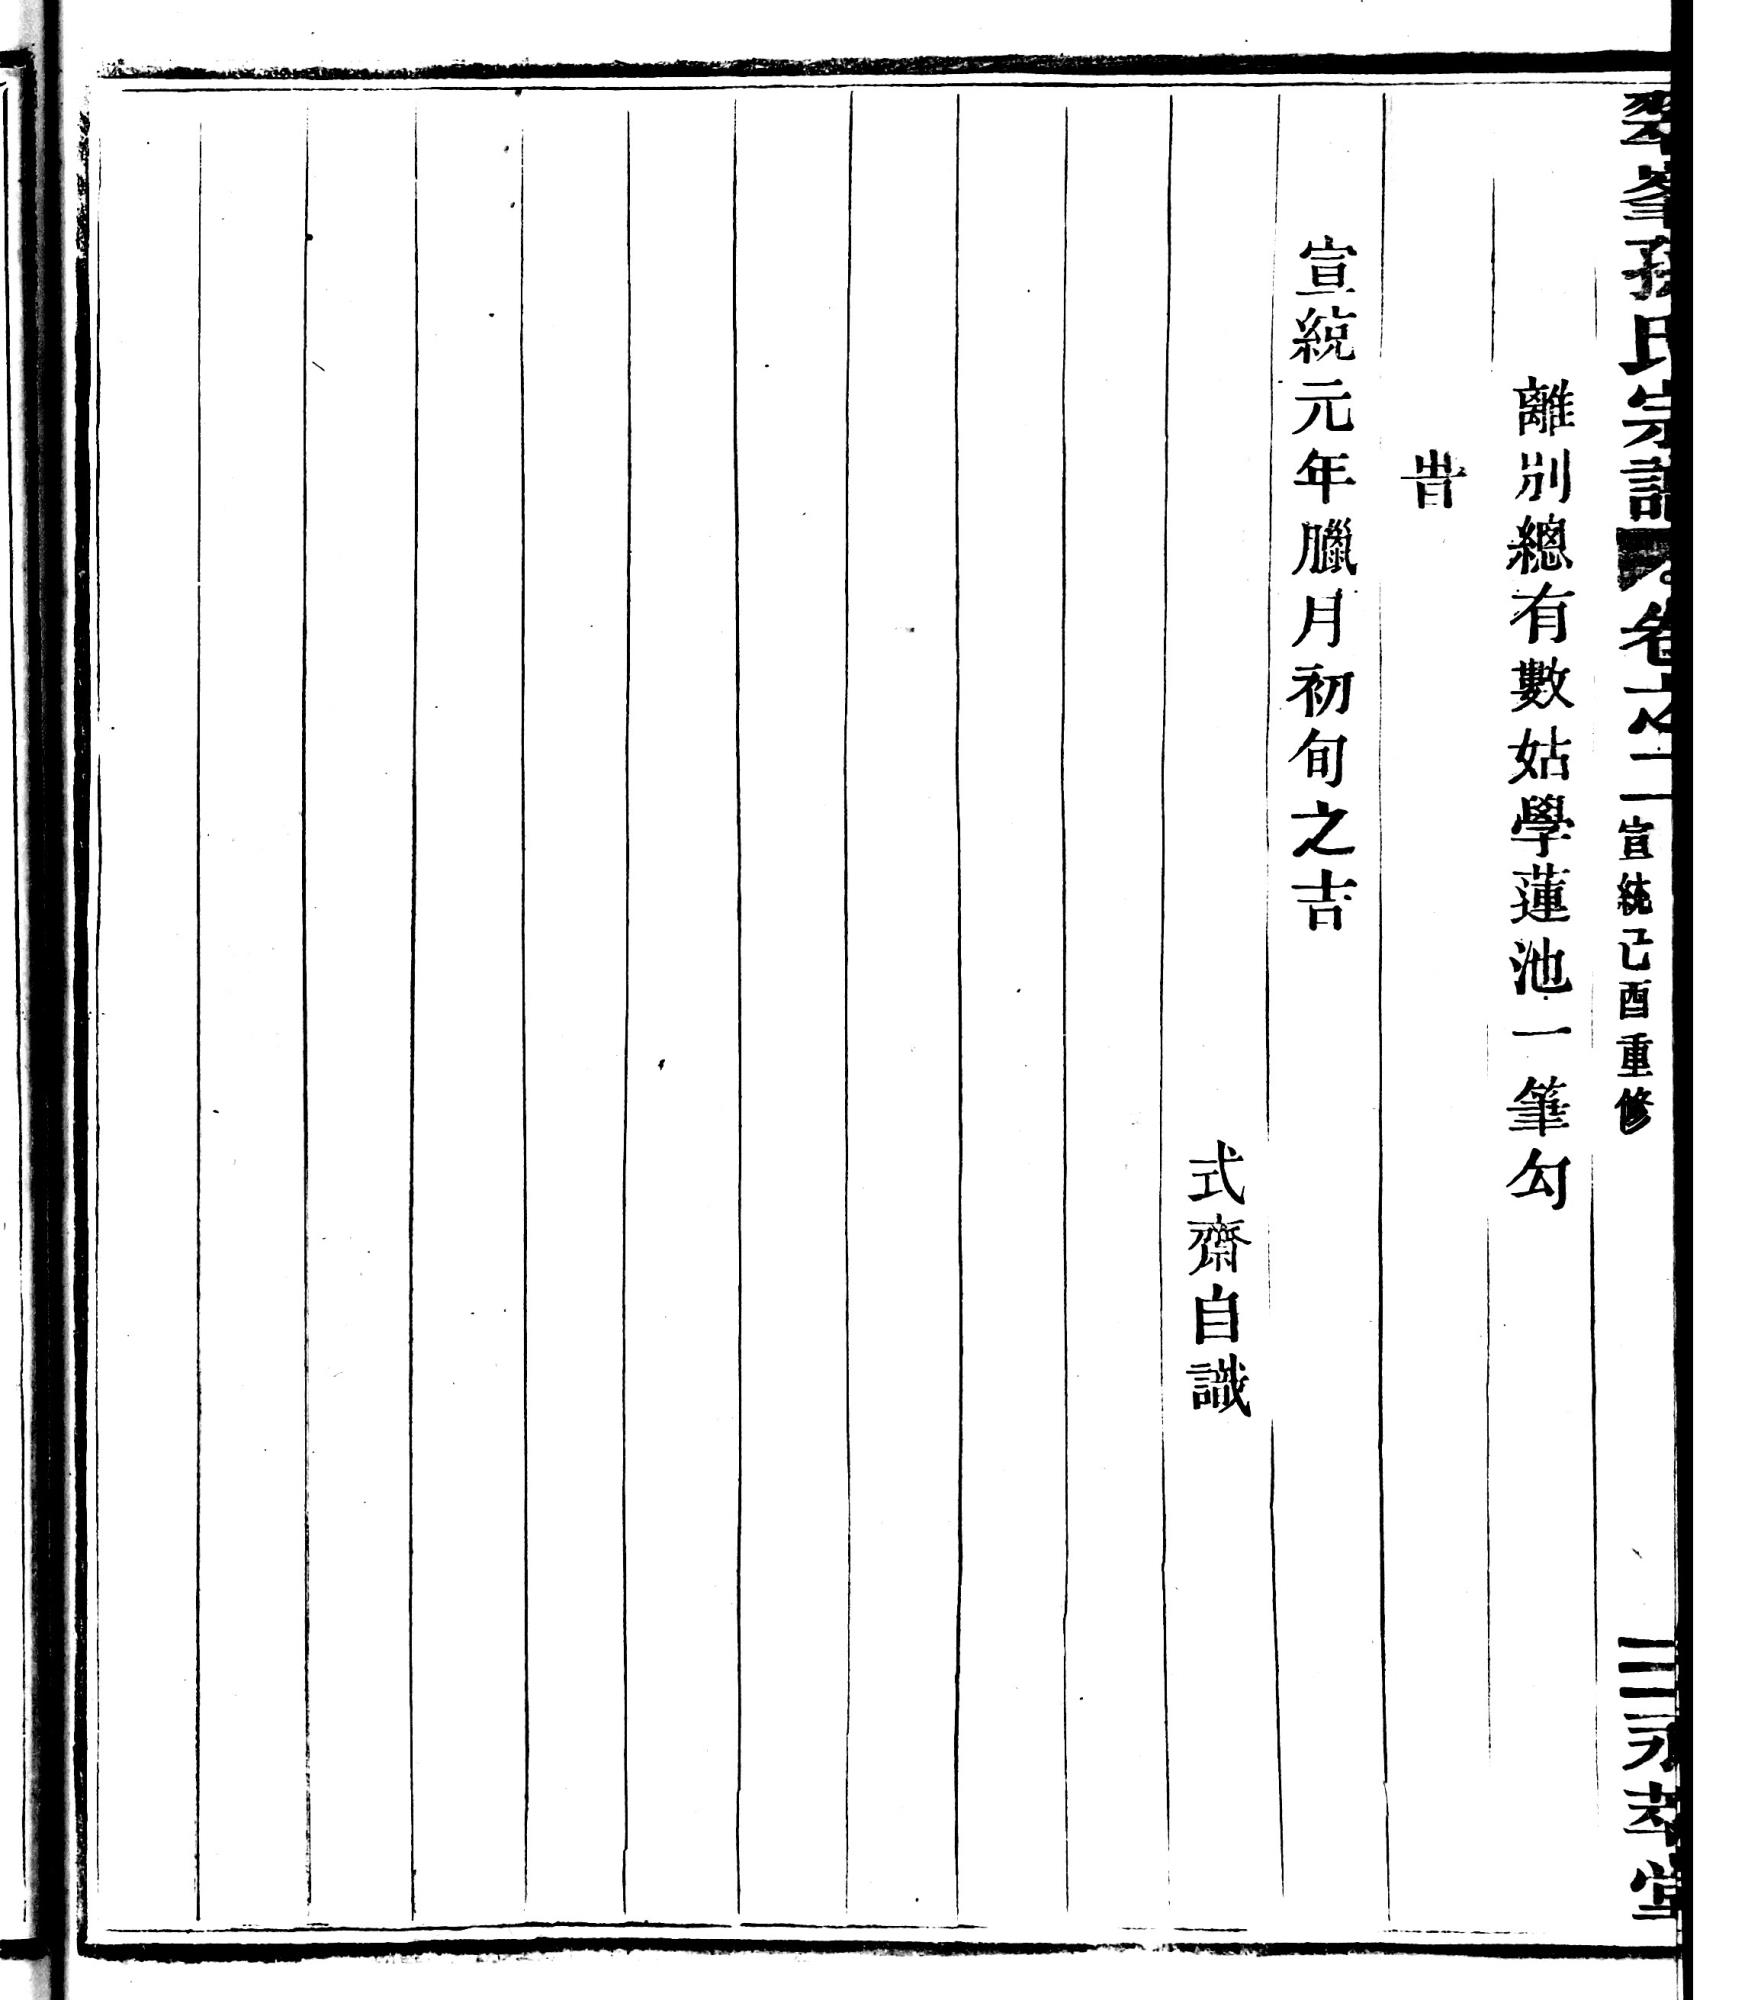 翠峯孫氏宗譜 卷之二 宣統己酉重修 三 永萃堂
離別總有數姑學蓮池一筆勾
旹
宣統元年臘月初旬之吉
式齋自識